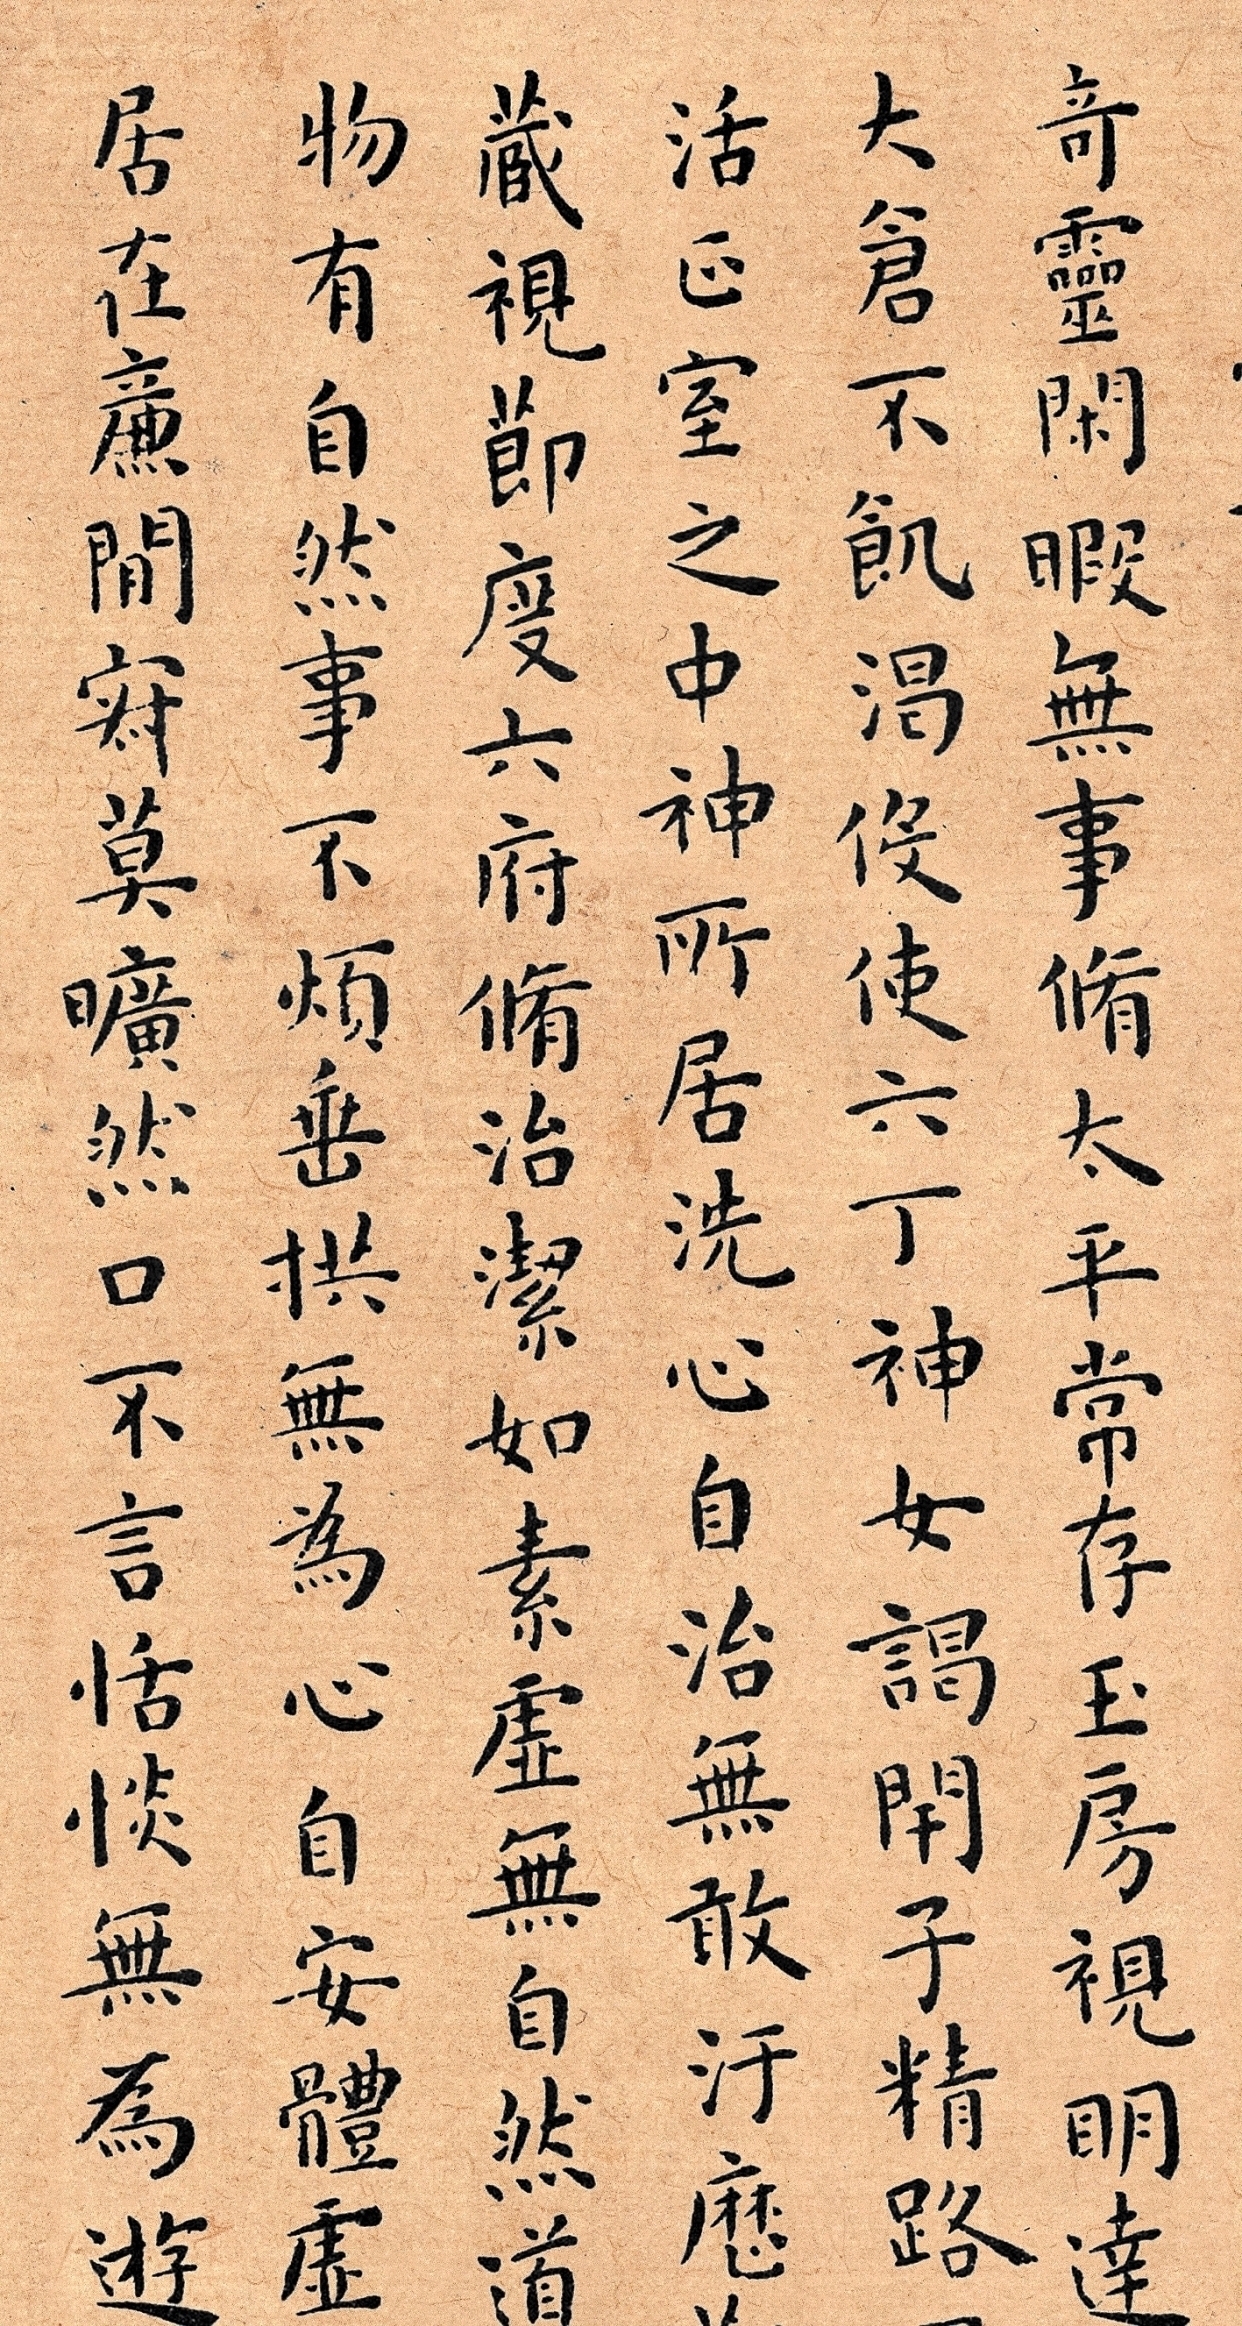 奇靈閑暇無事脩太平常存玉房視明達
大倉不飢渴役使六丁神女謁閉子精路
活正室之中神所居洗心自治無敢汙歷
藏視節度六府脩治潔如素虛無自然道
物有自然事不煩垂拱無為心自安體虛
居在廉閒寂莫曠然口不言恬惔無為遊